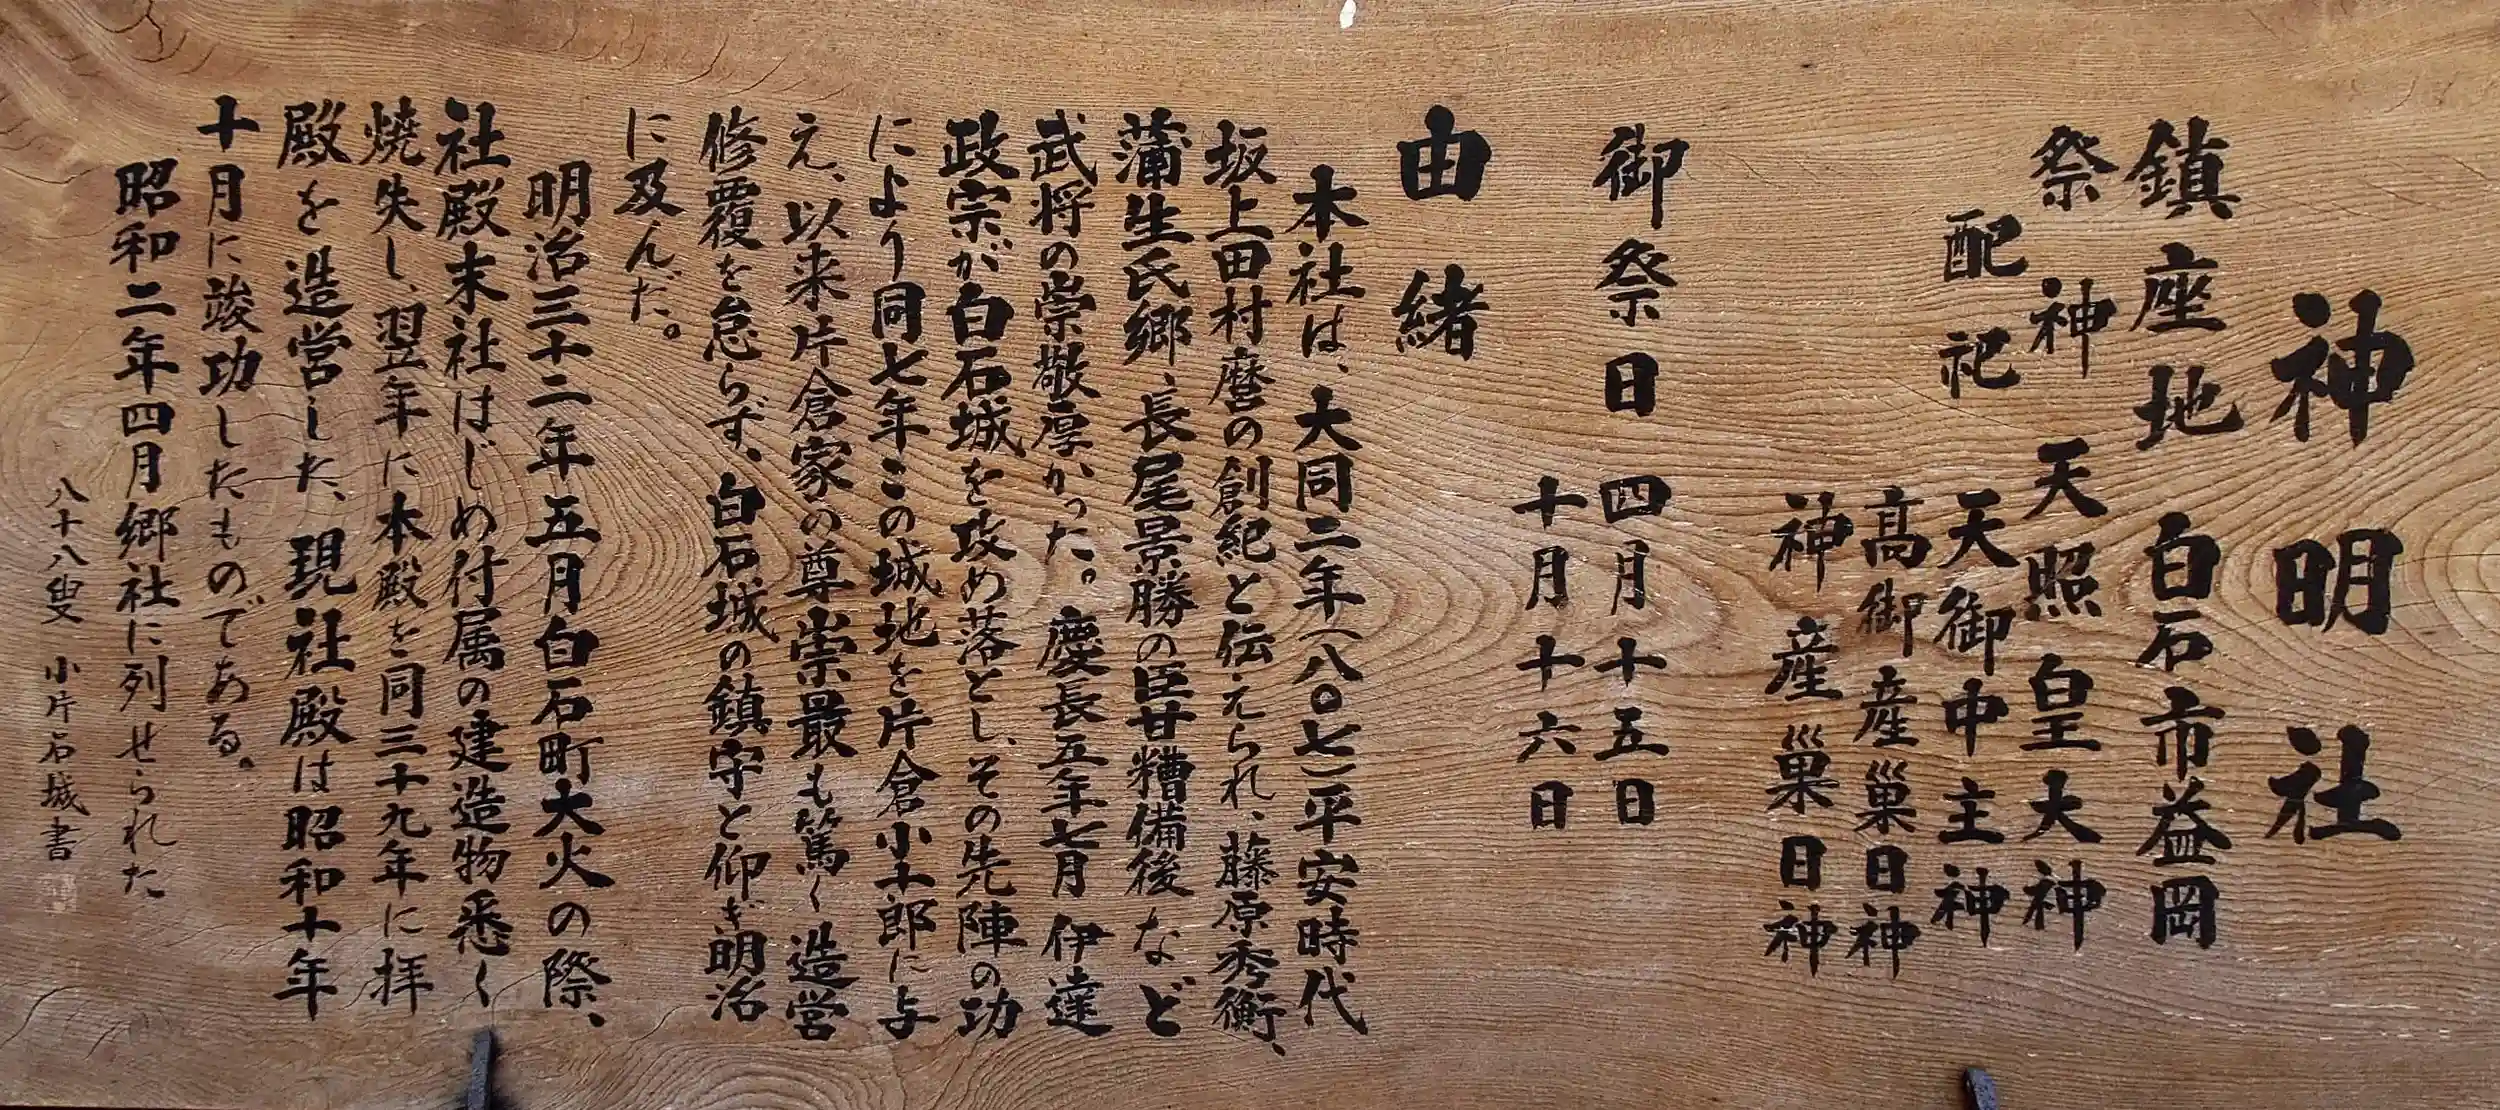 神明社
鎮座地 白石市益岡
祭神 天照皇大神
配祀 天御中主神
高御産巣日神
神産巣日神
御祭日 四月十五日
十月十六日
由緒
本社は、大同二年(八〇七)平安時代
坂上田村麿の創紀と伝えられ、藤原秀衡、
蒲生氏郷、長尾景勝の臣甘糟備後など
武将の崇敬厚かった。慶長五年七月伊達
政宗が白石城を攻め落とし、その先陣の功
により同七年この城地を片倉小十郎に与
え、以来片倉家の尊崇最も篤く造営
修覆を怠らず、白石城の鎮守と仰ぎ明治
に及んだ。
明治三十二年五月白石町大火の際、
社殿末社はじめ付属の建造物悉く
焼失し、翌年に本殿を同三十九年に拝
殿を造営した、現社殿は昭和十年
十月に竣功したものである。
昭和二年四月郷社に列せられた
八十八叟 小片石城書